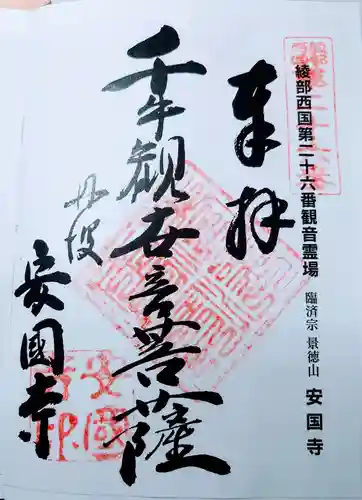 綾部西国第二十六番観音霊場 臨済宗 景徳山 安国寺
奉拝
千手観世音菩薩
丹波
安國寺